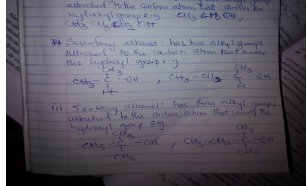 attached to the carbon atom that carries the
hydroxyl group e.g CH3 CH2 OH,
CH3 CH2 CH2 OH
ii Secondary alkanol: has two alkyl groups
attached to the carbon atom that carries
the hydroxyl group e.g
CH3 CH3
CH3 - C - OH , CH3 - CH2 C OH
H H
iii Tertiary alkanol: has three alkyl groups
attached to the carbon atom that carries the
hydroxyl group e.g
CH3 CH3
CH3 - C - OH , CH3 - CH2 - C - OH
CH3 CH3